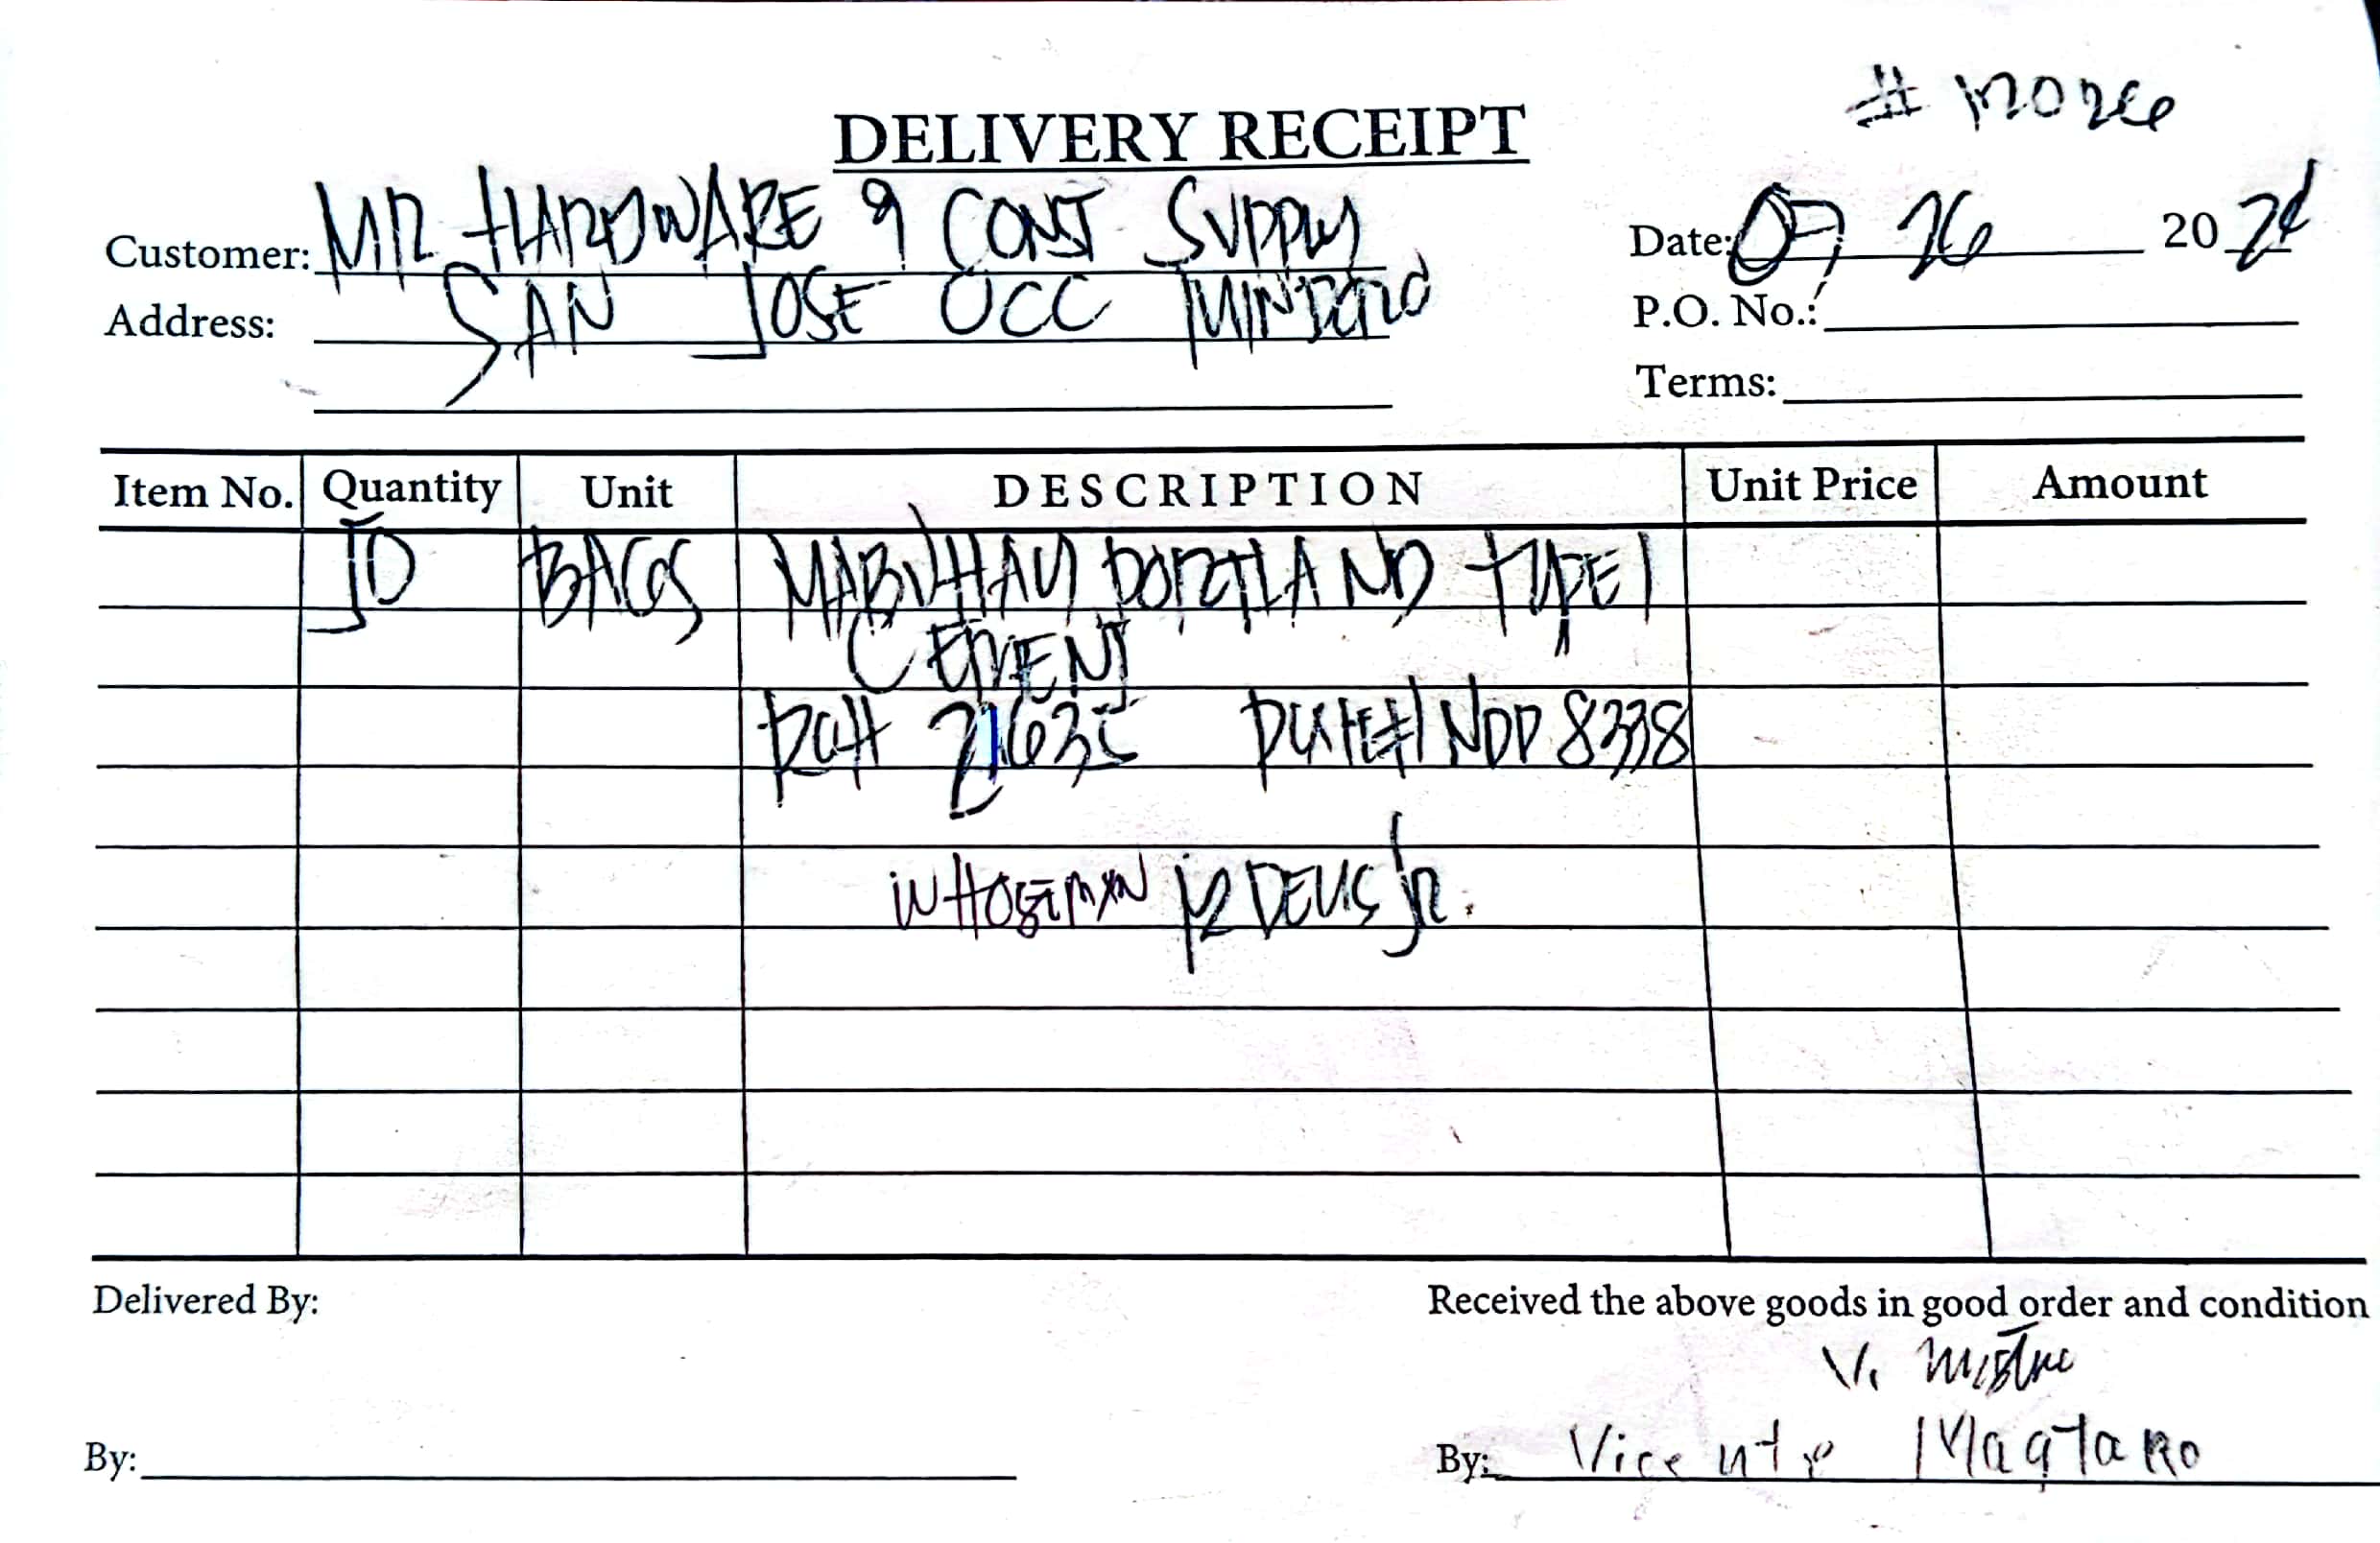 DELIVERY RECEIPT
Customer: MR HARDWARE & CONST SUPPLY
Date: 07, 26 2024
Address: SAN JOSE OCC MINDORO
P.O. No.:
Terms:
Item No. Quantity Unit DESCRIPTION Unit Price Amount
10 BAGS MABUHAY PORTLAND TYPE 1
CEMENT
PLATE# NDP 8338
JR.
Delivered By:
Received the above goods in good order and condition
V.
By:
By: Vicente Magtaro